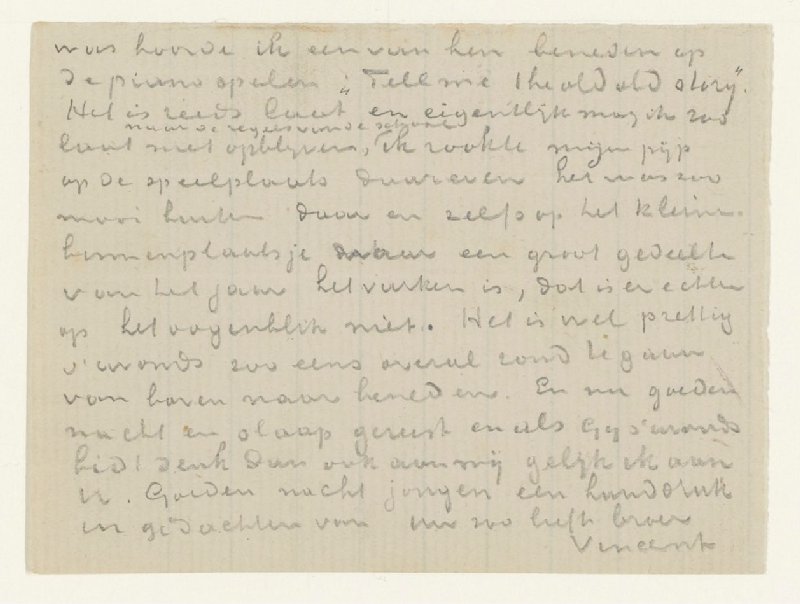 was hoorde ik een van hen beneden op
de piano spelen: „Tell me the old old story”.
Het is reeds laat en eigentlijk mag ik zoo
naar de regels van de school
laat niet opblijven, ik rookte mijn pijp
op de speelplaats daareven het was zoo
mooi buiten daar en zelfs op het kleine
binnenplaatsje waar een groot gedeelte
van het jaar het varken is, dat is er echter
op het oogenblik niet. Het is wel prettig
s'avonds zoo eens overal rond te gaan
van boven naar beneden. En nu goeden
nacht en slaap gerust en als Gij s'avonds
bidt denk dan ook aan mij gelijk ik aan
U. Goeden nacht jongen een handdruk
in gedachten van uw zoo liefh broer
Vincent